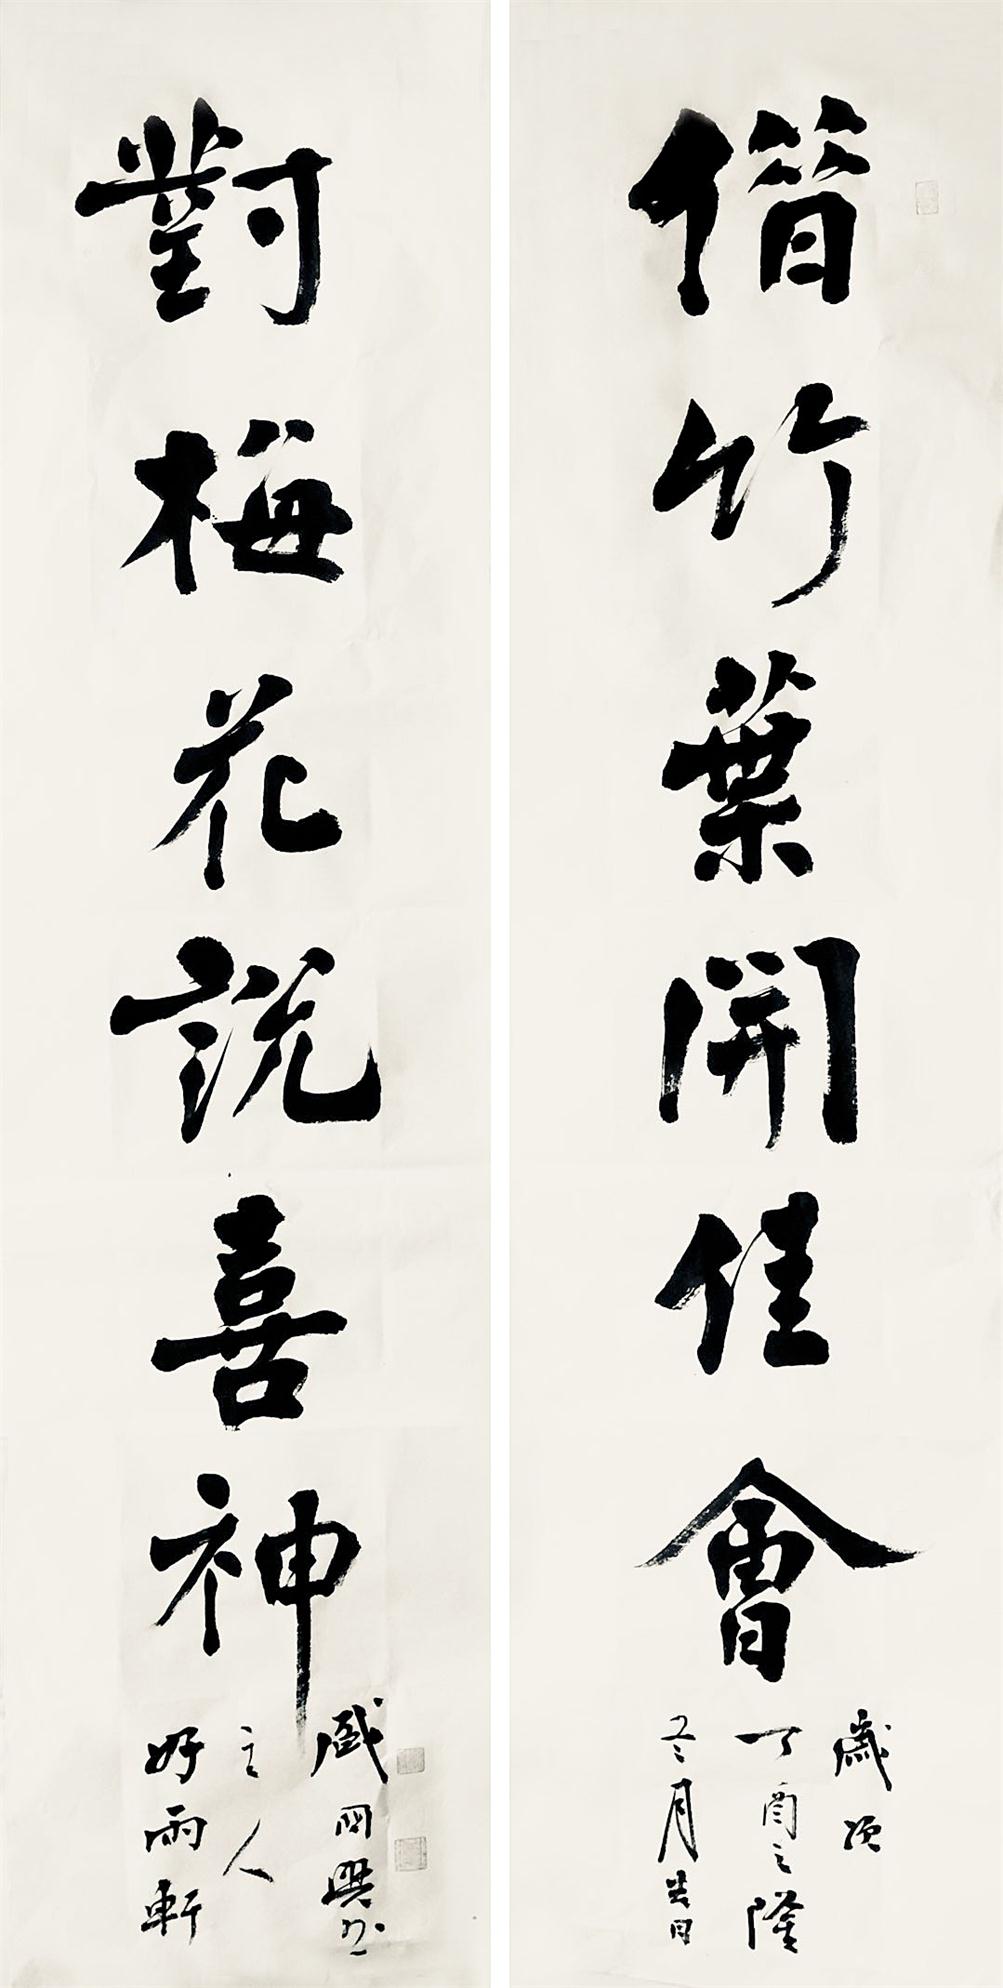 偕竹葉開佳會
歲次
丁酉之隆
冬月吉日
對梅花說喜神
好雨軒
之人
國興书